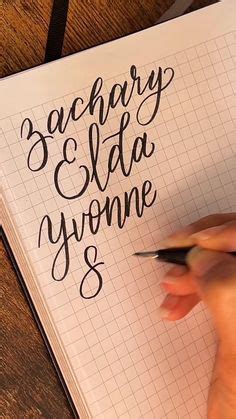 Zachary
Elda
Yvonne
S